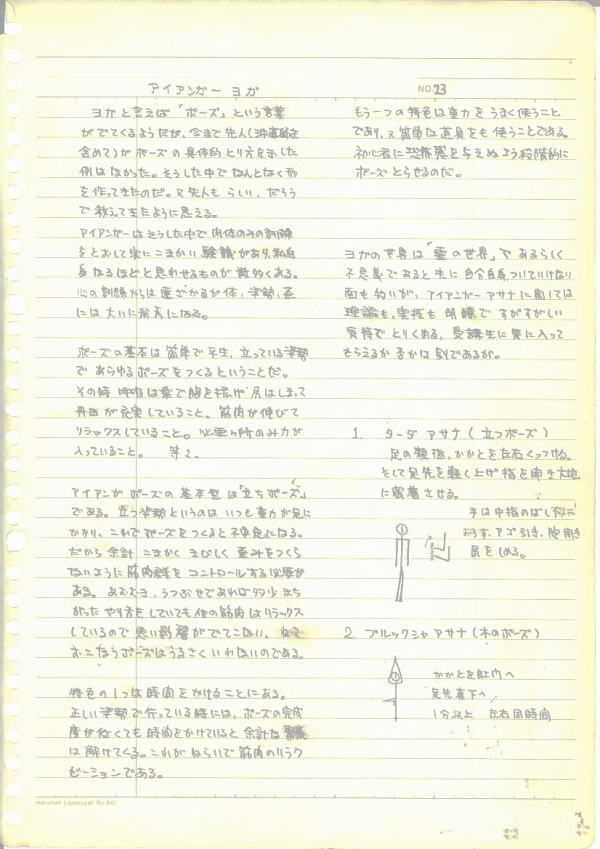 アイアンガー ヨガ
NO.23
ヨガと言えば「ポーズ」という言葉
がでてくるようだが、今まで先人(沖導師を
含めて)がポーズの具体的とり方を示した
例はなかった。そうした中でなんとなく形
を作ってきたのだ。又先人も らしい、だろう
で教えて来たように思える。
アイアンガーはそうした中で肉体のみの訓練
をとおして実にこまかい があり、私自
身なるほどと思わせるものが数多くある。
心の訓練からは遠ざかるが体、姿勢、
には大いに 考になる。
ポーズの基本は簡単で平生、立っている姿勢
であらゆるポーズをつくるということだ。
その時 呼吸は楽で胸を拡げ 尻はしまって
丹田が充実していること、筋肉が伸びて
リラックスしていること。必要ヶ所のみ力が
入っていること。 等々。
アイアンガ ポーズの基本型は「立ちポーズ」
である。立つ姿勢というのは いつも重力が足に
かかり、これでポーズをつくると不安定になる。
だから余計 こまかく きびしく 歪みをつくら
ないように筋肉群をコントロールする必要が
ある。あおむき、うつぶせであれば多少まち
がった やり方をしていても他の筋肉はリラックス
しているので悪い影響がでてこない。ねて
おこなうポーズはうるさくいわないのである。
特色の1つは時間をかけることにある。
正しい姿勢で行っている時には、ポーズの完成
度が低くても時間をかけていると余計な
は解けてくる。これがねらいで筋肉のリラク
ゼーションである。
もう一つの特色は重力をうまく使うこと
であり、又簡単な道具をも使うことである。
初心者に恐怖感を与えぬよう段階的に
ポーズとらせるのだ。
ヨガの世界は「霊の世界」であるらしく
不思議であると共に自分自身ついていけない
面も多いが、アイアンガー アサナに関しては
理論も、実技も 明瞭で すがすがしい
気持でとりくめる。受講生に気に入って
もらえるか否かは別であるが。
1. ターダ アサナ (立つポーズ)
足の親指、かかとを左右くっつける。
そして足先を軽く上げ指を開き大地
に密着させる。
手は中指のばし下に
おろす、アゴ引き、胸開き
尻をしめる。
2. ブルックシャ アサナ (木のポーズ)
かかとを肛門へ
足先真下へ
1分以上 左右同時間
maruman LooseLeaf No.842